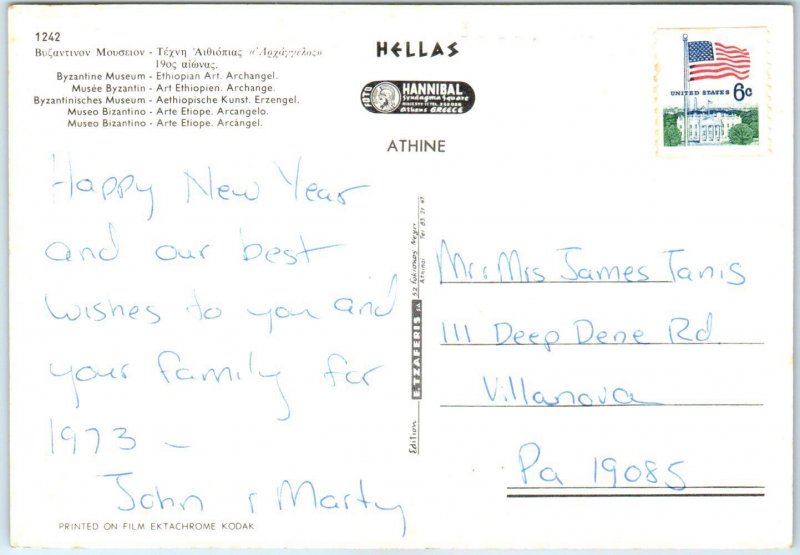 1242
Βυζαντινον Μουσειον - Τέχνη Αἰθιόπιας «Ἀρχάγγελος»
19ος αἰώνας.
Byzantine Museum - Ethiopian Art. Archangel.
Musée Byzantin - Art Ethiopien. Archange.
Byzantinisches Museum - Aethiopische Kunst. Erzengel.
Museo Bizantino - Arte Etiope. Arcangelo.
Museo Bizantino - Arte Etiope. Arcàngel.
HELLAS
FOTO
HANNIBAL
Syndagma Square
Athens GREECE
ATHINE
UNITED STATES 6c
Happy New Year
and our best
wishes to you and
your family for
1973 -
John & Marty
PRINTED ON FILM EKTACHROME KODAK
Edition E. TZAFERIS SA
52 Fokionos Negri
Athinai
Mr & Mrs James Tanis
111 Deep Dene Rd
Villanova
Pa 19085